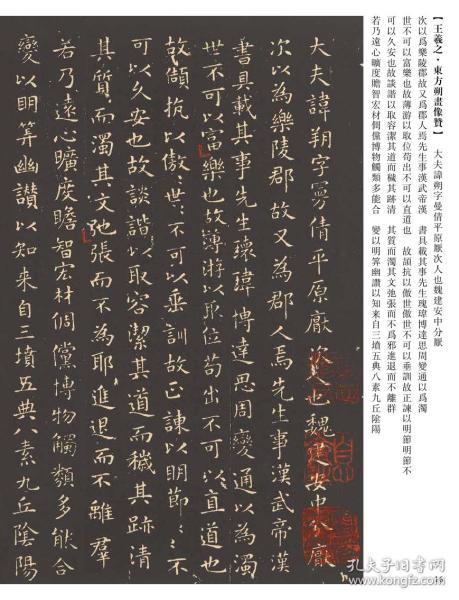 【王羲之·東方朔畫像贊】 大夫諱朔字曼倩平原厭次人也魏建安中分厭
次以爲樂陵郡故又爲郡人焉先生事漢武帝漢 書具載其事先生瑰瑋博達思周變通以爲濁
世不可以富樂也故薄游以取位苟出不可以直道也 故頡抗以傲世傲世不可以垂訓故正諫以明節明節不
可以久安也故談諧以取容潔其道而穢其跡清 其質而濁其文弛張而不爲邪進退而不離群
若乃遠心曠度贍智宏材倜儻博物觸類多能合 變以明筭幽讚以知來自三墳五典八素九丘陰陽
大夫諱朔字曼倩平原厭次人也魏建安中分厭
次以為樂陵郡故又為郡人焉先生事漢武帝漢
書具載其事先生瓌瑋博達思周變通以為濁
世不可以富樂也故薄游以取位苟出不可以直道也
故頡抗以傲世〻不可以垂訓故正諫以明節〻不
可以久安也故談諧以取容潔其道而穢其跡清
其質而濁其文弛張而不為耶進退而不離羣
若乃遠心曠度贍智宏材倜儻博物觸類多能合
變以明筭幽讚以知来自三墳五典八素九丘陰陽
孔夫子旧书网
www.kongfz.com